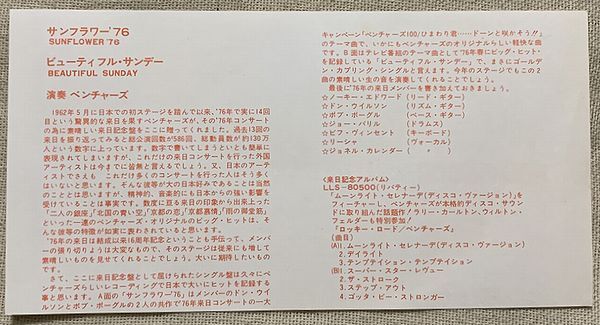 サンフラワー'76
SUNFLOWER '76
ビューティフル・サンデー
BEAUTIFUL SUNDAY
演奏 ベンチャーズ
1962年5月に日本での初ステージを踏んで以来、'76年で実に14回
目という驚異的な来日を果すベンチャーズが、その'76年コンサート
の為に素晴しい来日記念盤をここに贈ってくれました。過去13回の
来日を振り返ってみると総公演回数が586回、総動員数が約130万
人という数字に上っています。数字で書いてしまうといとも簡単に
表現されてしまいますが、これだけの来日コンサートを行った外国
アーティストは今までに皆無と言えるでしょう。又、日本のアーテ
ィストでさえも これだけ多くのコンサートを行った人はそう多く
はいないと思います。そんな彼等が大の日本好みであることは当然
のことと思いますが、精神的、音楽的にも日本からの強い影響を
受けていることは事実です。数度に亘る来日の印象から出来上った
「二人の銀座」「北国の青い空」「京都の恋」「京都慕情」「雨の御堂筋」
といった一連のベンチャーズ・オリジナルのビッグ・ヒットは、そ
んな彼等の特徴が如実に表われていると思います。
'76年の来日は結成以来16周年記念ということも手伝って、メンバ
ーの張り切りようは大変なもので、そのステージは従来にも増して
素晴しいものを見せてくれることでしょう。大いに期待したいもの
です。
さて、ここに来日記念盤として届けられたシングル盤は久々にベ
ンチャーズらしいレコーディングで日本で大いにヒットを記録する
事と思います。A面の「サンフラワー'76」はメンバーのドン・ウイ
ルソンとボブ・ボーグルの2人の共作で'76年来日コンサートの一大
キャンペーン「ベンチャーズ100/ひまわり君……ドーンと咲かそう!!」
のテーマ曲で、いかにもベンチャーズのオリジナルらしい軽快な曲
です。B面はテレビ番組のテーマ曲として'76年春にビッグ・ヒット
を記録している「ビューティフル・サンデー」で、まさにゴールデ
ン・カプリング・シングルと言えます。今年のステージでもこの2
曲の素晴しい生の音を演奏してくれることでしょう。
最後に'76年の来日メンバーを書き加えておきましょう。
☆ノーキー・エドワード(リード・ギター)
☆ドン・ウイルソン (リズム・ギター)
☆ボブ・ボーグル (ベース・ギター)
☆ジョー・バリル (ドラムス)
☆ビフ・ヴィンセント (キーボード)
☆リーシャ (ヴォーカル)
☆ジョネル・カレンダー ( 〃 )
《来日記念アルバム》
LLS-80500(リバティー)
「ムーンライト・セレナーデ(ディスコ・ヴァージョン)」を
フィーチャーし、ベンチャーズが本格的ディスコ・サウン
ドに取り組んだ話題作!ラリー・カールトン、ウィルトン・
フェルダーも特別参加!
「ロッキー・ロード/ベンチャーズ」
(曲目)
(A)1.ムーンライト・セレナーデ(ディスコ・ヴァージョン)
2.デイライト
3.テンプテイション・テンプテイション
(B)1.スーパー・スター・レヴュー
2.ザ・ストローク
3.ステップ・アウト
4.ゴッタ・ビー・ストロンガー